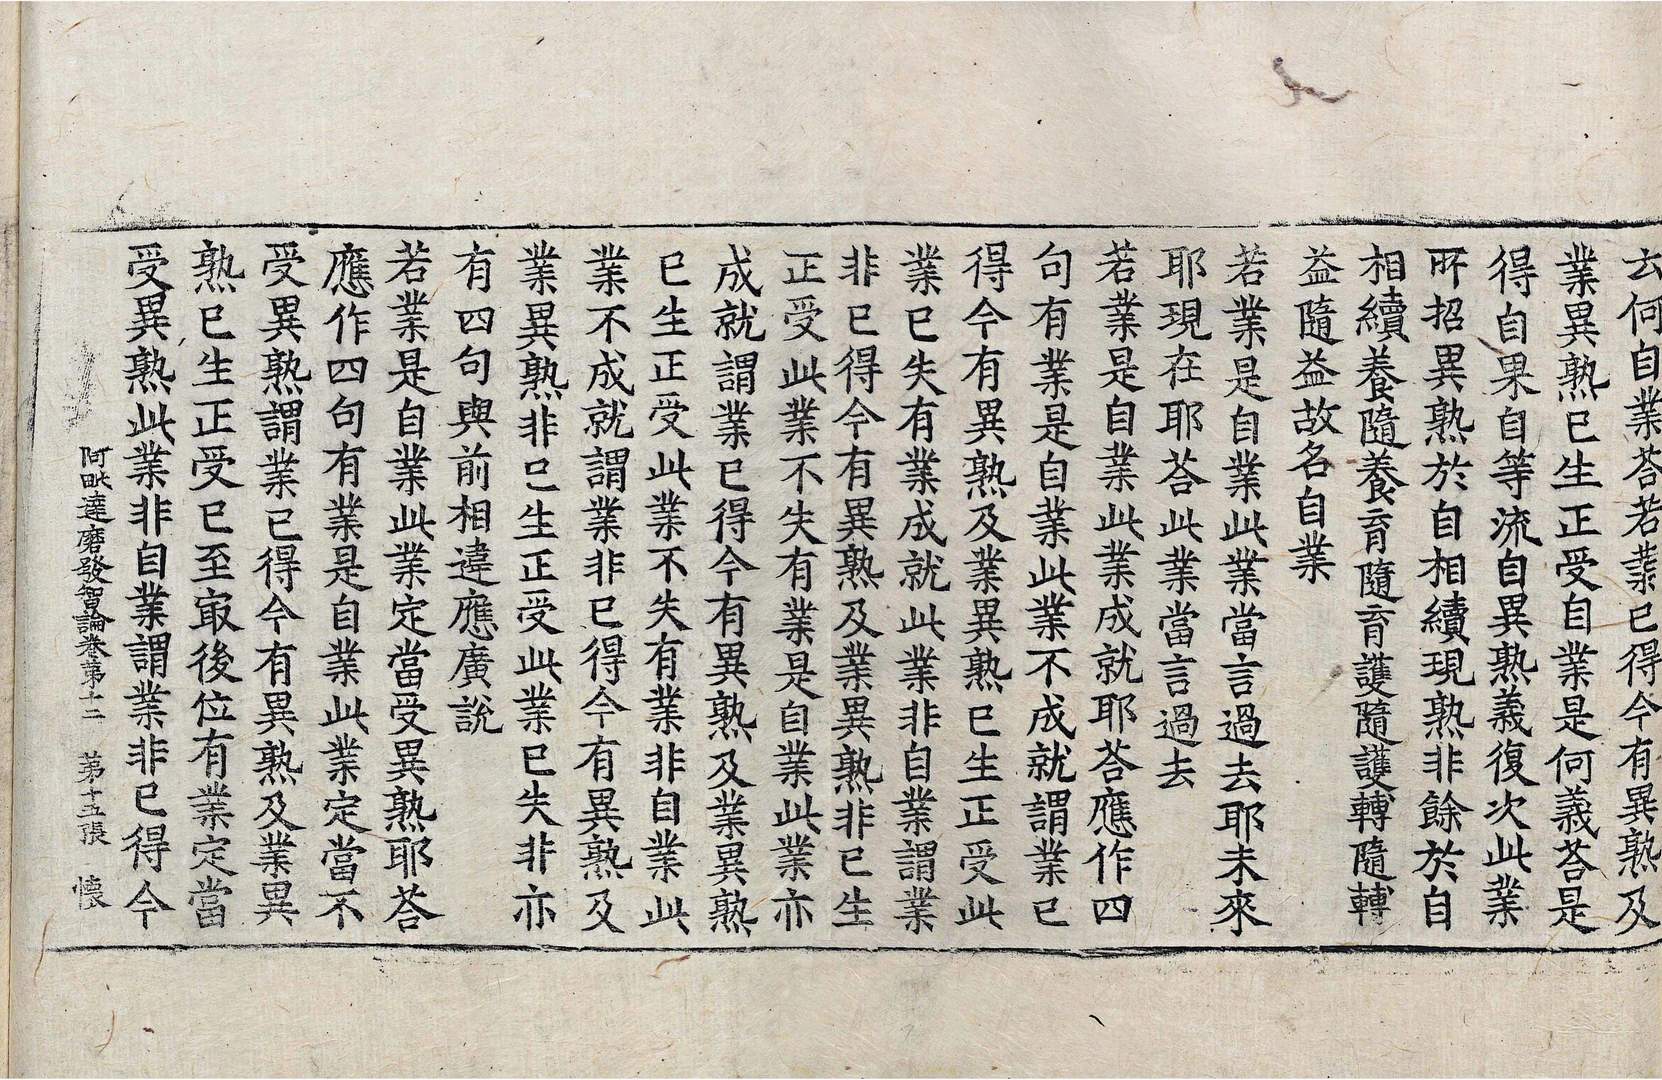 云何自業荅若業已得今有異熟及
業異熟已生正受自業是何義荅是
得自果自等流自異熟義復次此業
所招異熟於自相續現熟非餘於自
相續養隨養育隨育護隨護轉隨轉
益隨益故名自業
若業是自業此業當言過去耶未來
耶現在耶荅此業當言過去
若業是自業此業成就耶荅應作四
句有業是自業此業不成就謂業已
得今有異熟及業異熟已生正受此
業已失有業成就此業非自業謂業
非已得今有異熟及業異熟非已生
正受此業不失有業是自業此業亦
成就謂業已得今有異熟及業異熟
已生正受此業不失有業非自業此
業不成就謂業非已得今有異熟及
業異熟非已生正受此業已失非亦
有四句與前相違應廣說
若業是自業此業定當受異熟耶荅
應作四句有業是自業此業定當不
受異熟謂業已得今有異熟及業異
熟已生正受已至㝡後位有業定當
受異熟此業非自業謂業非已得今
阿毗達磨發智論卷第十二 第十五張 懷